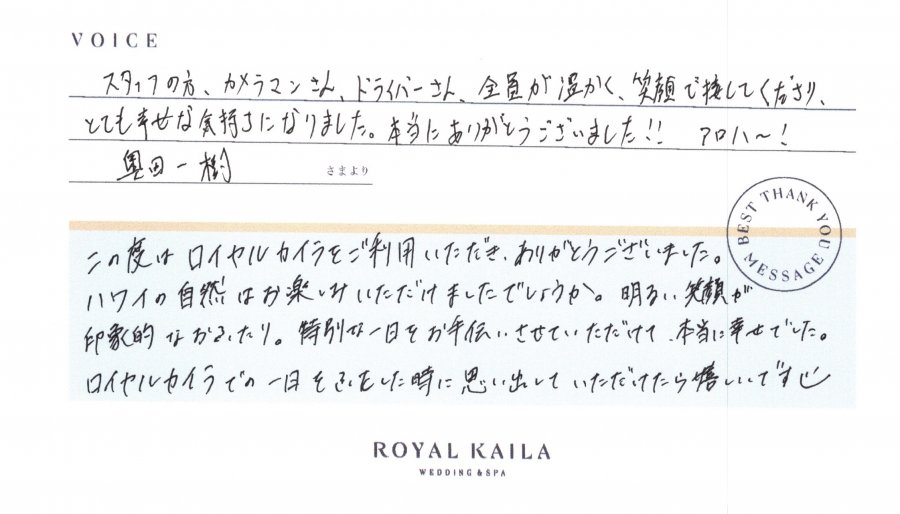 VOICE
スタッフの方、カメラマンさん、ドライバーさん、全員が温かく、笑顔で接してくださり、
とても幸せな気持ちになりました。本当にありがとうございました!! アロハ〜!
奥田一樹 さまより
BEST THANK YOU MESSAGE
この度はロイヤルカイラをご利用いただき、ありがとうございました。
ハワイの自然はお楽しみいただけましたでしょうか。明るい笑顔が
印象的なおふたり。特別な一日をお手伝いさせていただけて、本当に幸せでした。
ロイヤルカイラでの一日を した時に思い出していただけたら嬉しいです
ROYAL KAILA
WEDDING & SPA